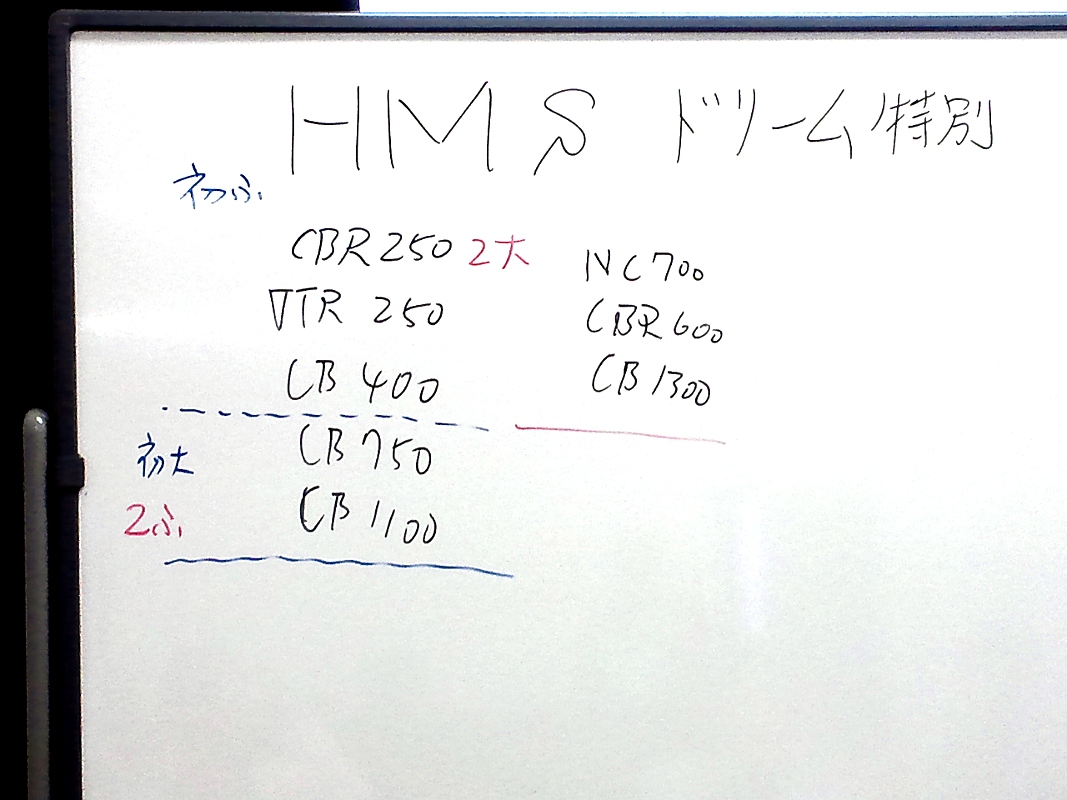 HMS ドリーム特別
初ふ
CBR250 2大
VTR 250
CB 400
NC700
CBR600
CB1300
初大
CB 750
2ふ
CB 1100